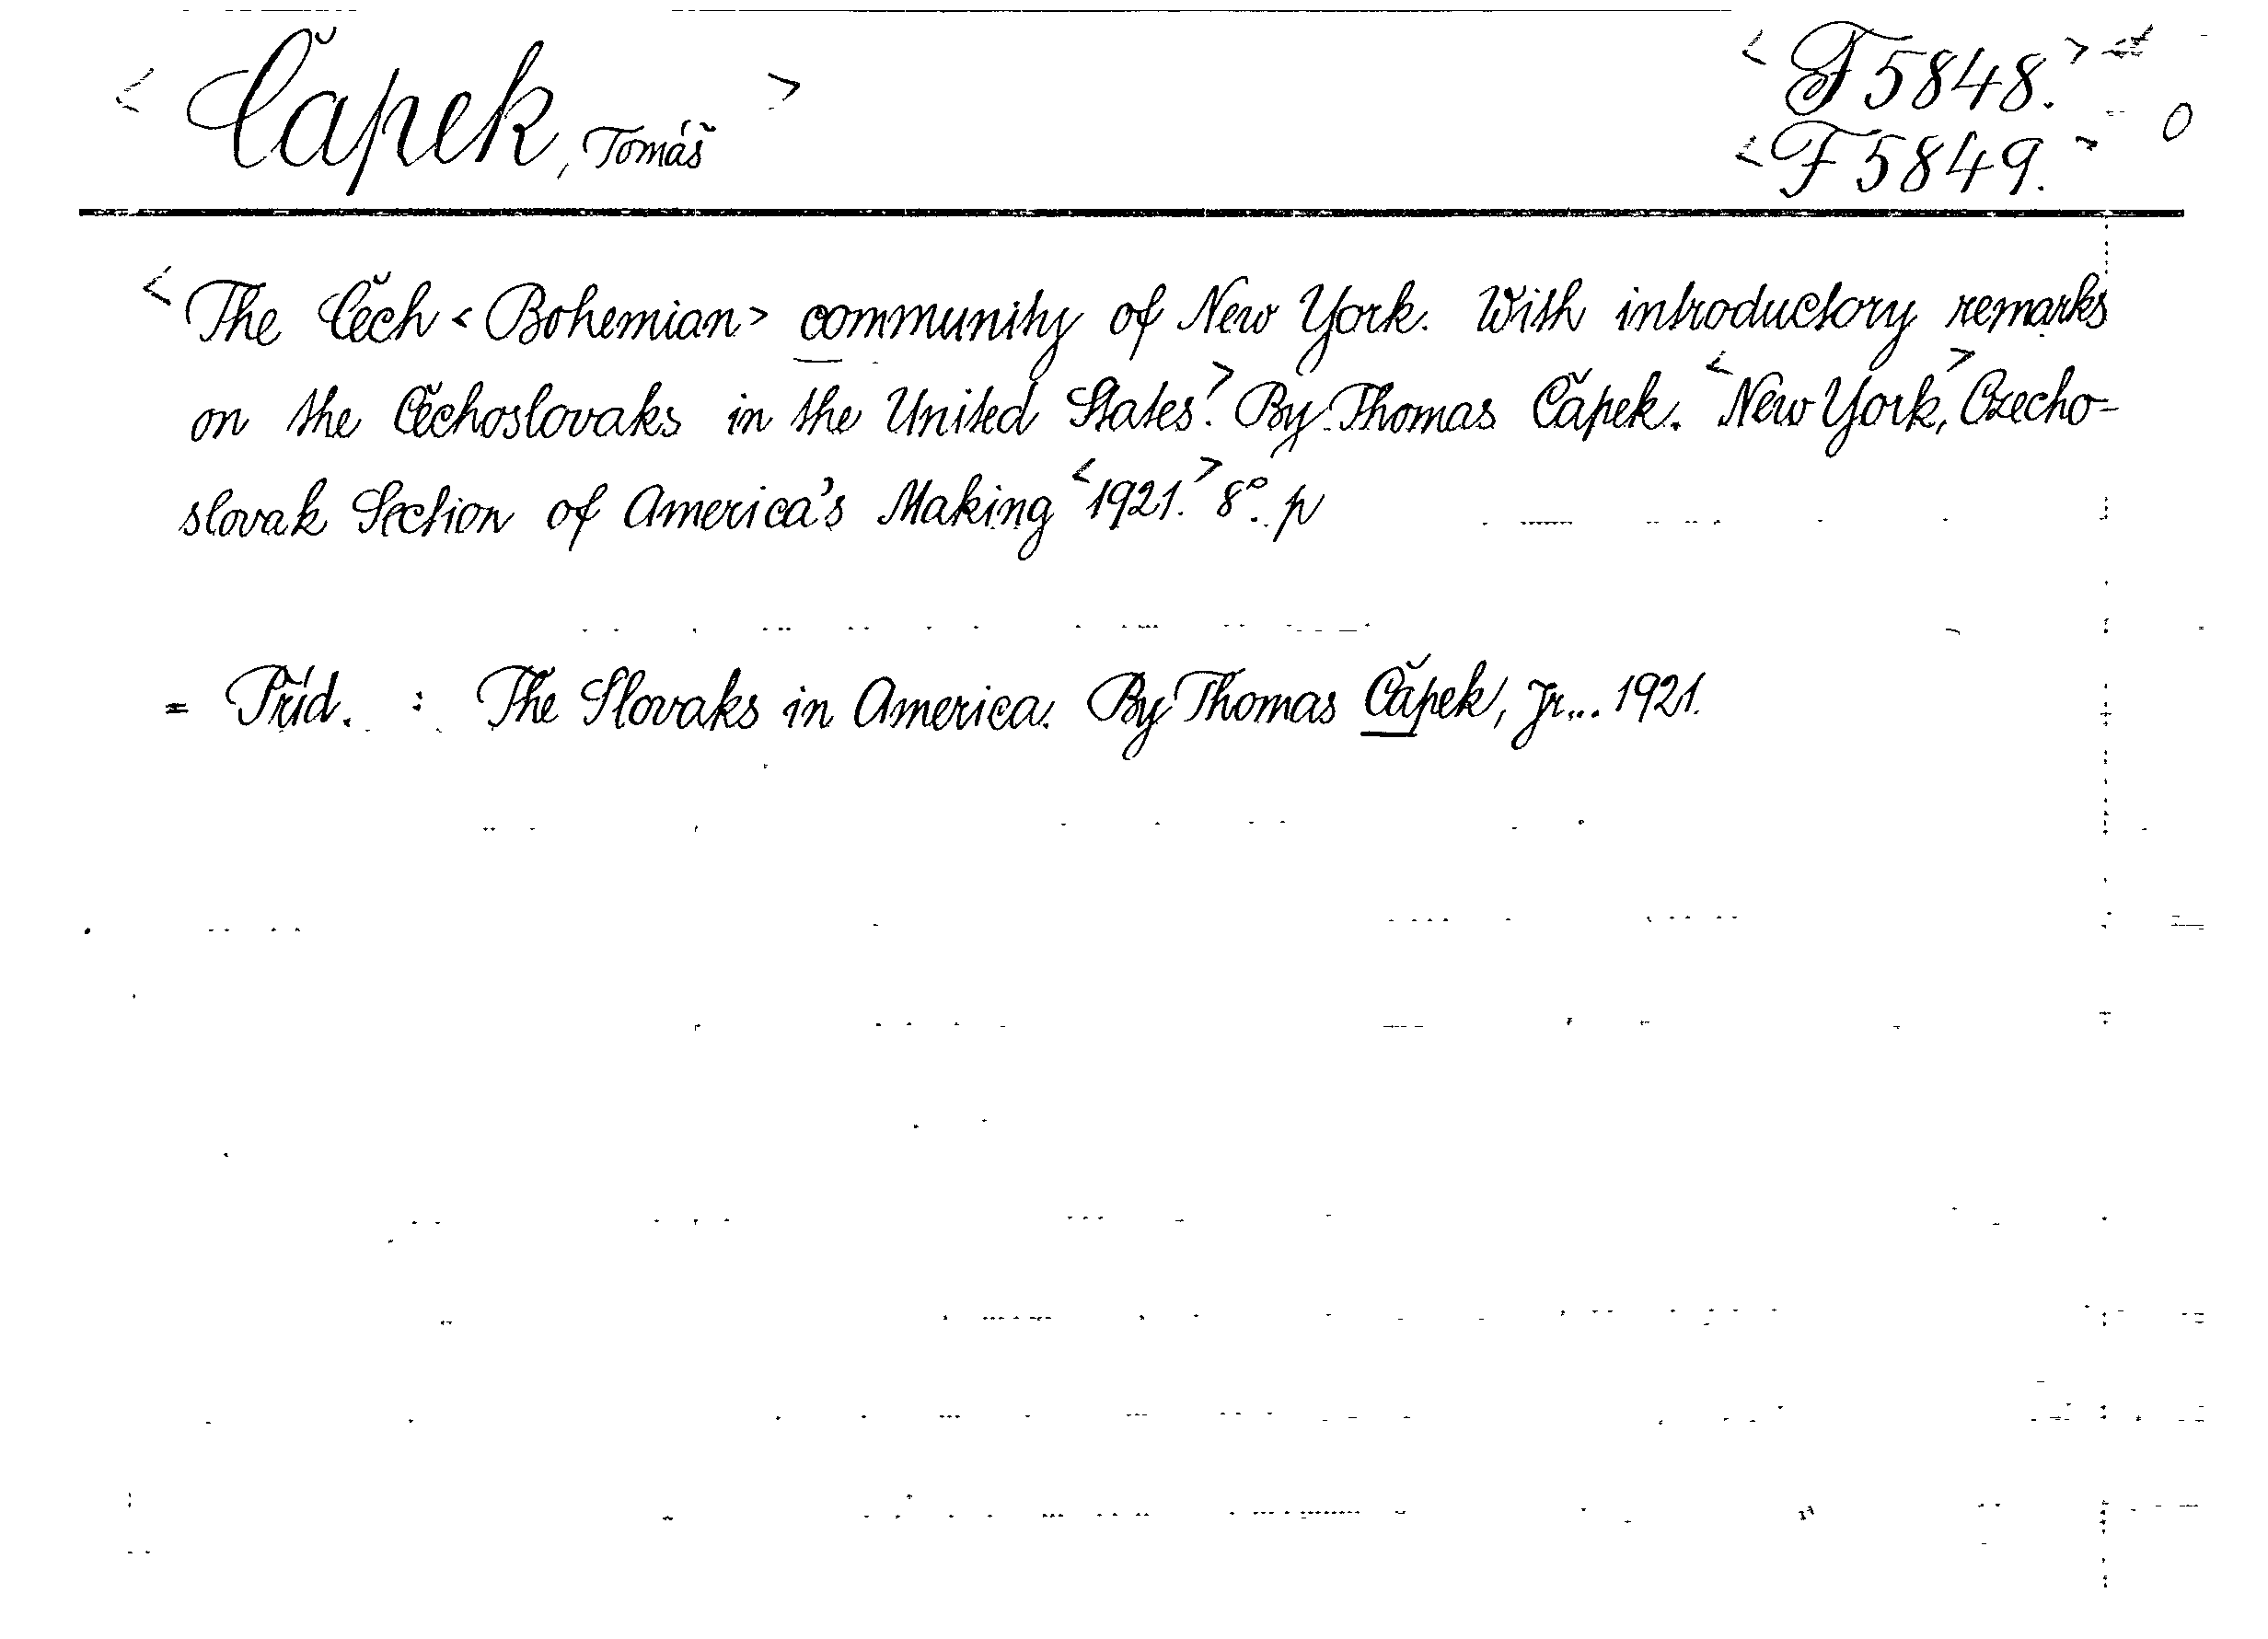 < Čapek, Tomáš >
< F 5848. >
< F 5849. >
0
< The Čech < Bohemian > community of New York. With introductory remarks
on the Čechoslovaks in the United States.> By Thomas Čapek. <New York,> Czecho-
slovak Section of America's Making <1921.> 8°. p
= Příd. : The Slovaks in America. By Thomas Čapek, Jr... 1921.